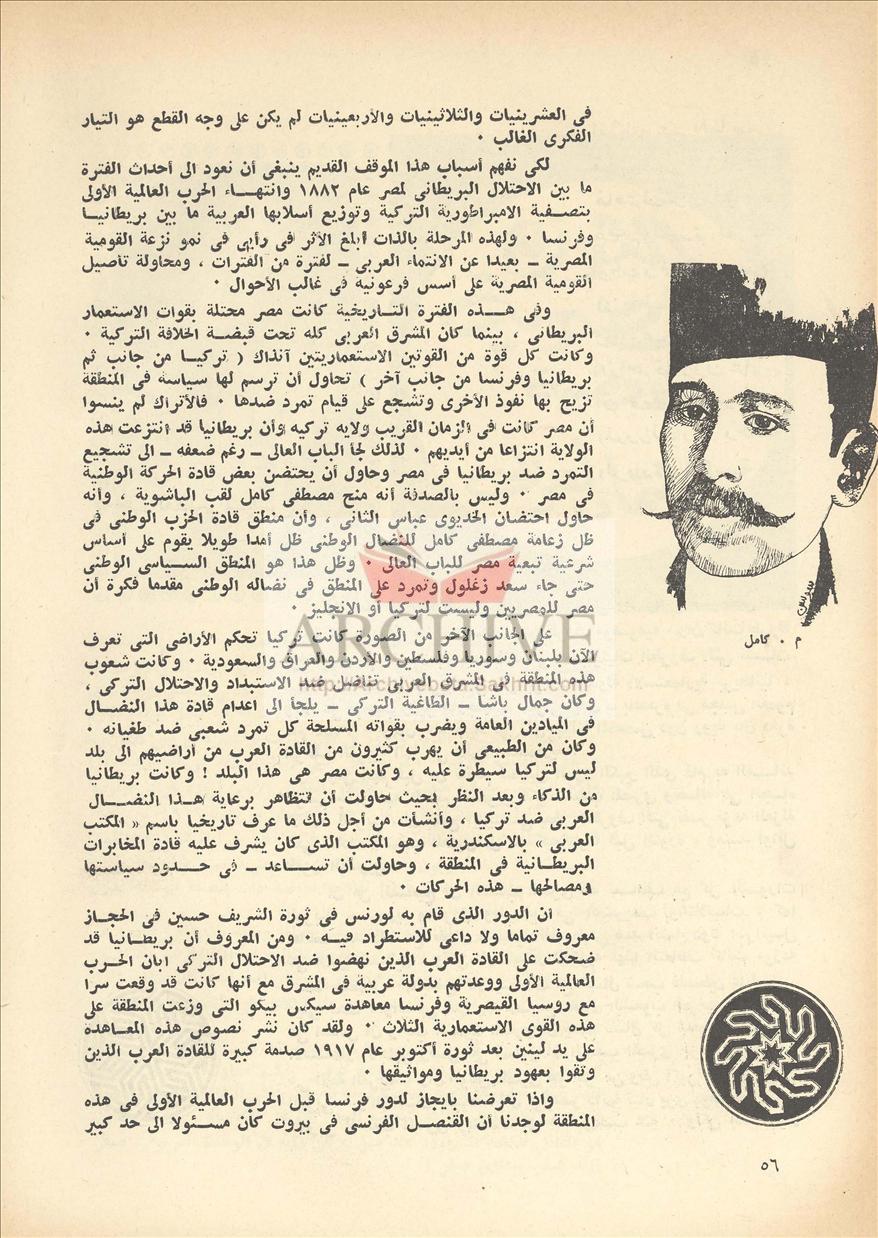 فى العشرينيات والثلاثينيات والأربعينيات لم يكن على وجه القطع هو التيار
الفكرى الغالب ٠
لكى نفهم أسباب هذا الموقف القديم ينبغى أن نعود الى أحداث الفترة
ما بين الاحتلال البريطانى لمصر عام ١٨٨٢ وانتهـــاء الحرب العالمية الأولى
بتصـفية الامبراطورية التركية وتوزيع أسلابها العربية ما بين بريطانيـا
وفرنسا ٠ ولهذه المرحلة بالذات أبلغ الأثر فى رأيى فى نمو نزعة القومية
المصرية ــ بعيدا عن الانتماء العربى ــ لفترة من الفترات ، ومحاولة تأصيل
القومية المصرية على أسس فرعونية فى غالب الأحوال ٠
وفى هـــذه الفترة التـاريخية كانت مصر محتلة بقوات الاستعمار
البريطانى ، بينما كان المشرق العربى كله تحت قبضـة الخلافة التركية ٠
وكانت كل قوة من القوتين الاستعماريتين آنذاك ( تركيـا من جانب ثم
بريطانيا وفرنسا من جانب آخر ) تحاول أن ترسم لها سياسة فى المنطقة
تزيح بها نفوذ الأخرى وتشجع على قيام تمرد ضدها ٠ فالأتراك لم ينسوا
أن مصر كانت فى الزمان القريب ولايه تركيه وأن بريطانيا قد انتزعت هذه
الولاية انتزاعا من أيديهم ٠ لذلك لجأ الباب العالى ــ رغم ضعفه ــ الى تشجيع
التمرد ضد بريطانيا فى مصر وحاول أن يحتضن بعض قادة الحركة الوطنية
فى مصر ٠ وليس بالصدفة أنه منح مصطفى كامل لقب الباشوية ، وأنه
حاول احتضان الخديوى عباس الثانى ، وأن منطق قادة الحزب الوطنى فى
ظل زعامة مصطفى كامل للنضال الوطنى ظل أمدا طويلا يقوم على أساس
شرعية تبعية مصر للباب العالى ٠ وظل هذا هو المنطق السـياسى الوطنى
حتى جاء سعد زغلول وتمرد على المنطق فى نضاله الوطنى مقدما فكرة أن
مصر للمصريين وليست لتركيا أو الانجليز ٠
على الجانب الآخر من الصورة كانت تركيا تحكم الأراضى التى تعرف
الآن بلبنان وسوريا وفلسطين والأردن والعراق والسعودية ٠ وكانت شعوب
هذه المنطقة فى المشرق العربى تناضل ضد الاستبداد والاحتلال التركى ،
وكان جمال باشا ــ الطاغية التركى ــ يلجأ الى اعدام قادة هذا النضـال
فى الميادين العامة ويضرب بقواته المسلحة كل تمرد شعبى ضد طغيانه ٠
وكان من الطبيعى أن يهرب كثيرون من القادة العرب من أراضيهم الى بلد
ليس لتركيا سيطرة عليه ، وكانت مصر هى هذا البلد ! وكانت بريطانيا
من الذكاء وبعد النظر بحيث حاولت أن تتظاهر برعاية هـذا النضـــال
العربى ضد تركيا ، وأنشأت من أجل ذلك ما عرف تاريخيا باسم « المكتب
العربى » بالاسكندرية ، وهو المكتب الذى كان يشرف عليه قادة المخابرات
البريطـانية فى المنطقة ، وحاولت أن تســاعد ــ فى حـدود سياستها
ومصالحها ــ هذه الحركات ٠
ان الدور الذى قام به لورنس فى ثورة الشريف حسين فى الحجـاز
معروف تماما ولا داعى للاستطراد فيـه ٠ ومن المعروف أن بريطـانيا قد
ضحكت على القادة العرب الذين نهضوا ضد الاحتلال التركى ابان الحـرب
العالمية الأولى ووعدتهم بدولة عربية فى المشرق مع أنها كانت قد وقعت سرا
مع روسيا القيصرية وفرنسا معاهدة سيكس بيكو التى وزعت المنطقة على
هذه القوى الاستعمارية الثلاث ٠ ولقد كان نشر نصوص هذه المعـاهدة
على يد لينين بعد ثورة أكتوبر عام ١٩١٧ صدمة كبيرة للقادة العرب الذين
وثقوا بعهود بريطانيا ومواثيقها ٠
واذا تعرضنا بايجاز لدور فرنسا قبل الحرب العالمية الأولى فى هذه
المنطقة لوجدنا أن القنصل الفرنسى فى بيروت كان مسـئولا الى حد كبير
سوسن
م ٠ كامل
ARCHIVE
http://Archivebeta.Sakhrit.com
٥٦